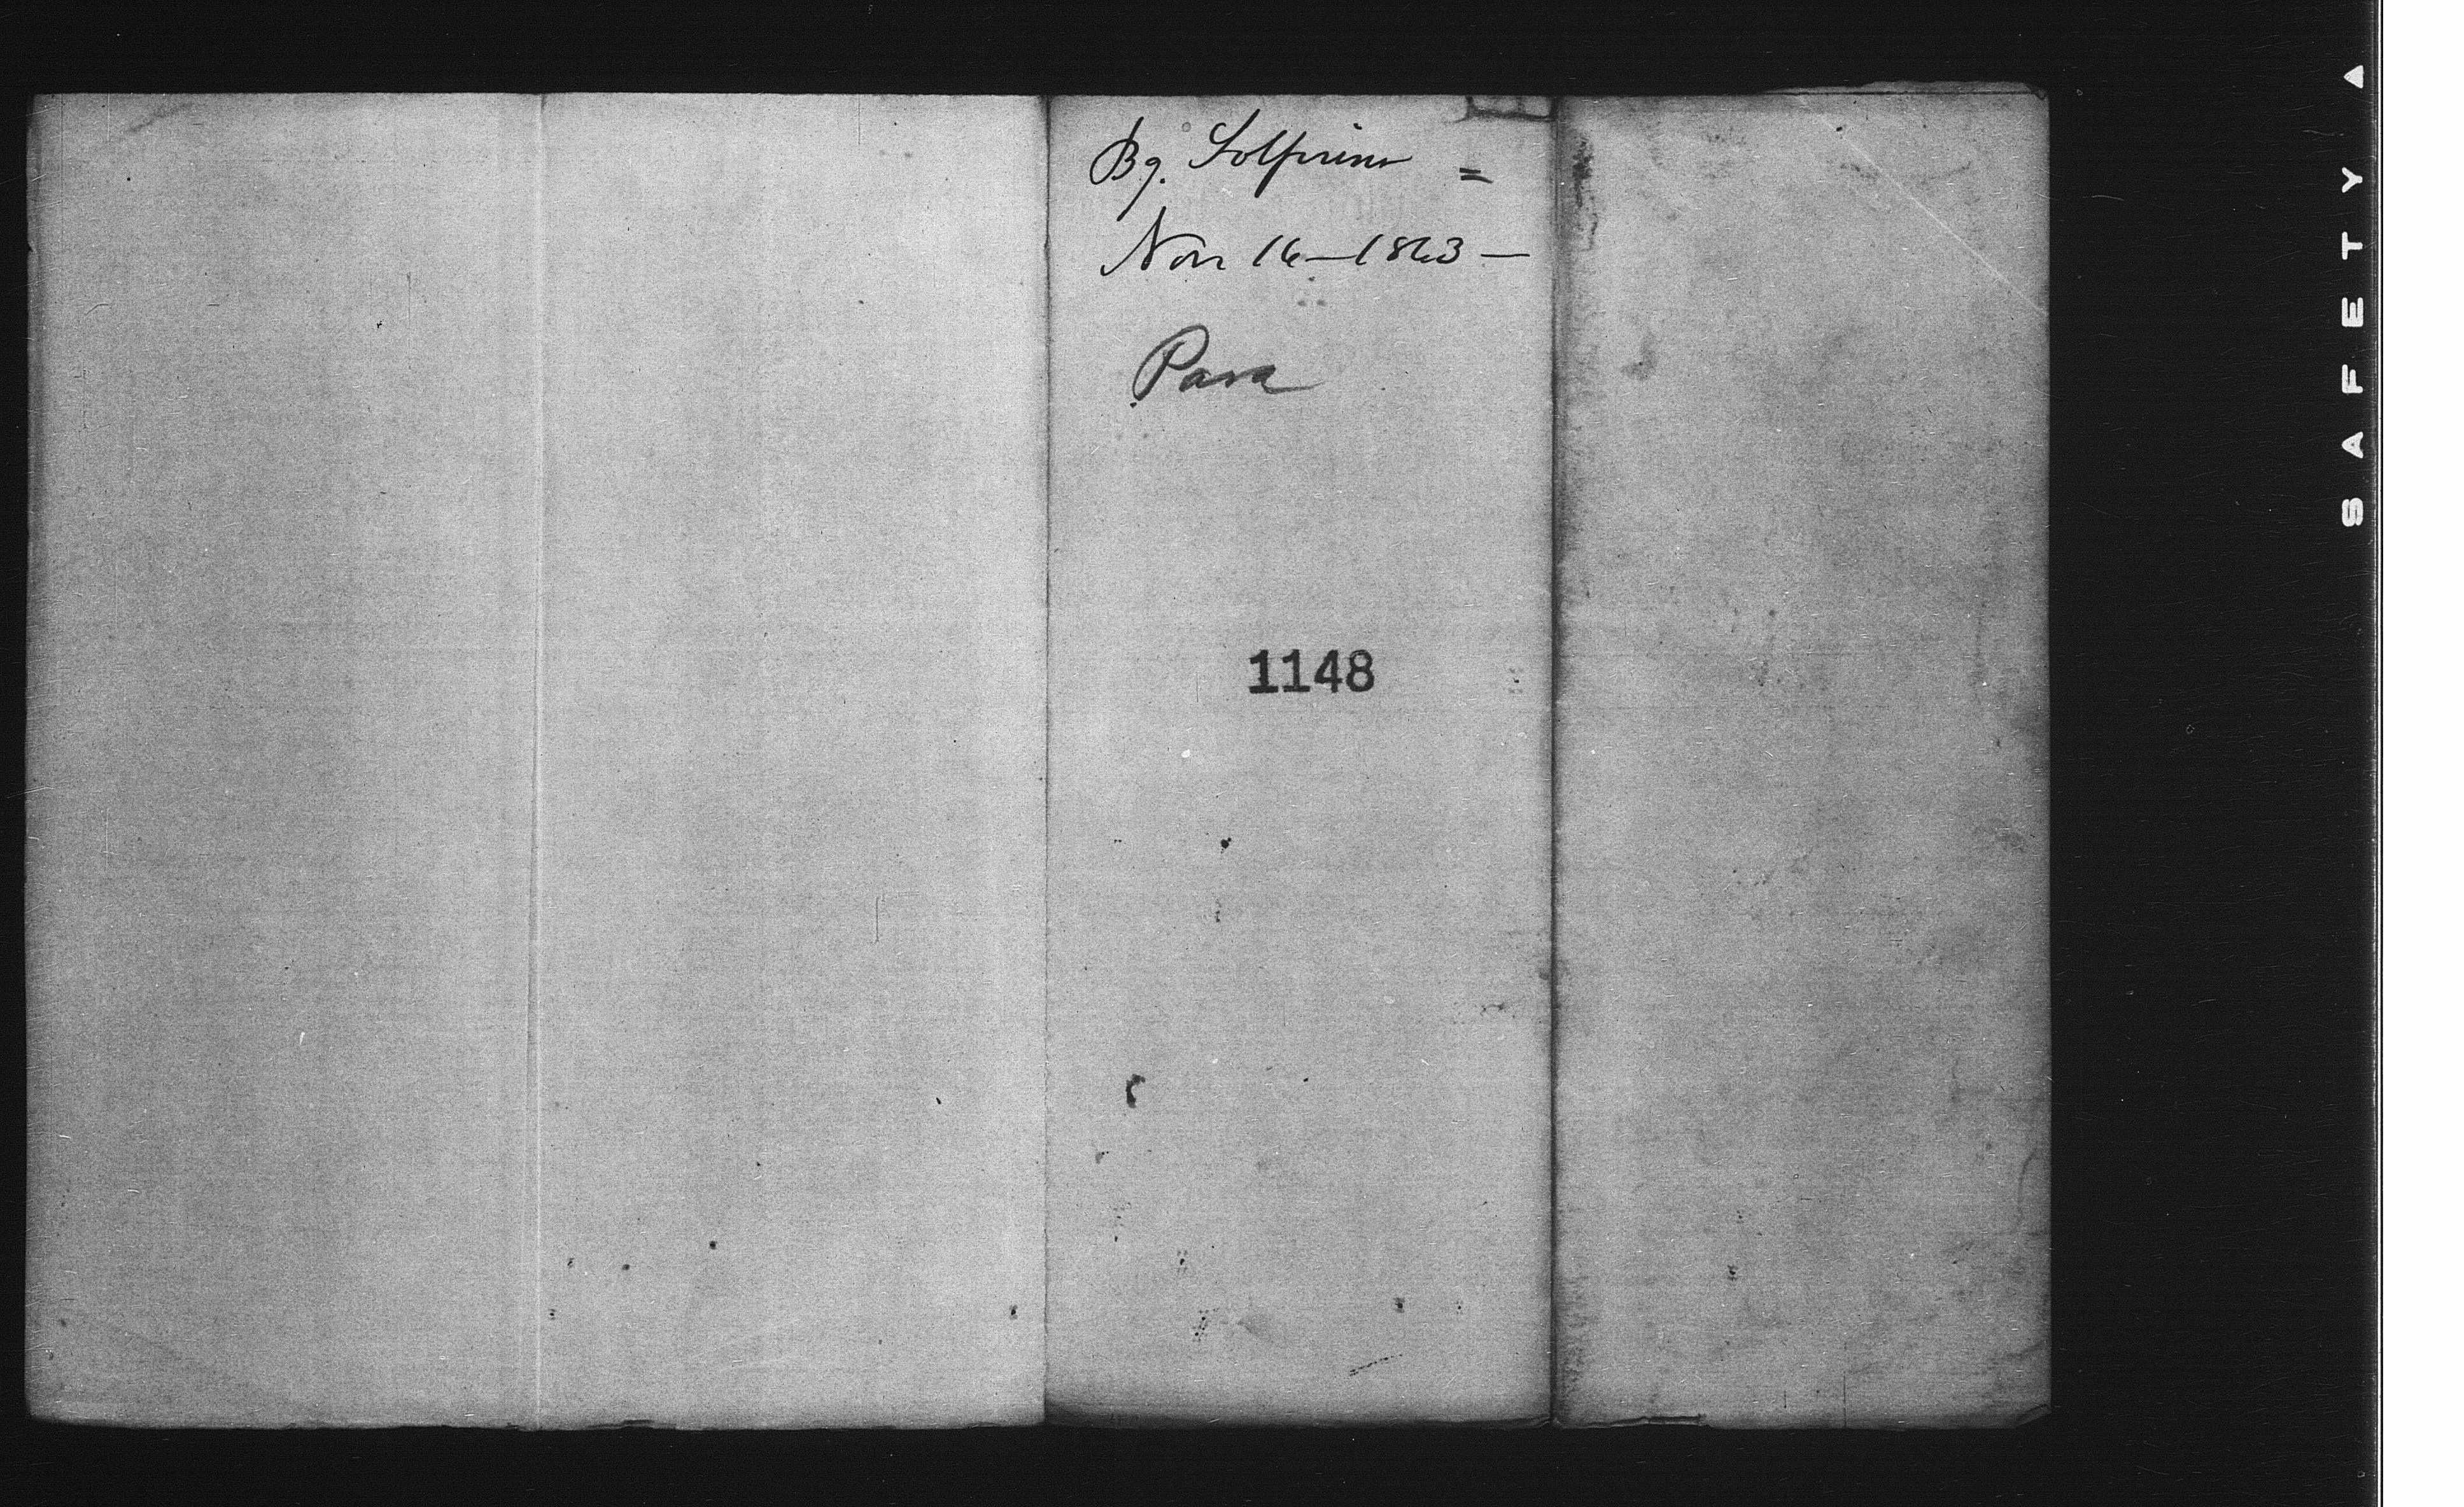 Bg. Solferino =
Nov 16 - 1863 -
Para
1148
SAFETY